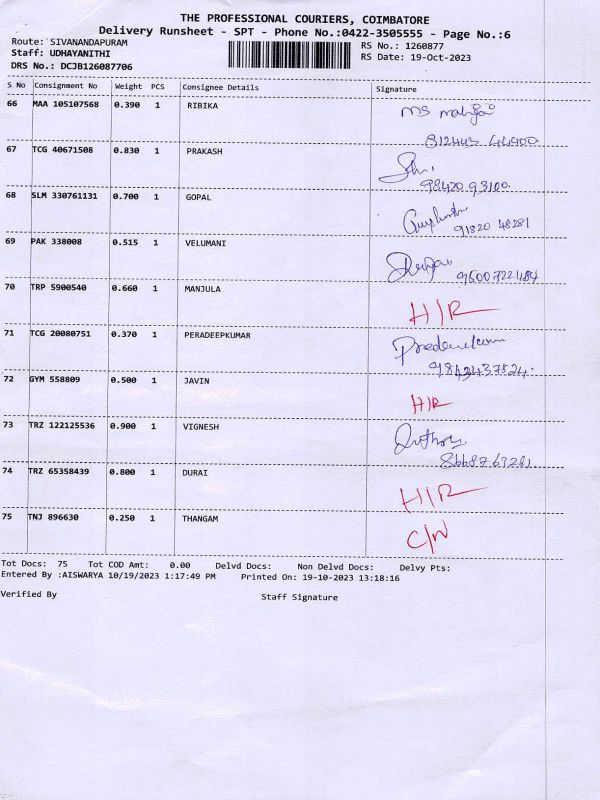 THE PROFESSIONAL COURIERS, COIMBATORE
Delivery Runsheet - SPT - Phone No.:0422-3505555 - Page No.:6
Route: SIVANANDAPURAM RS No.: 1260877
Staff: UDHAYANITHI RS Date: 19-Oct-2023
DRS No.: DCJB126087706
S No Consignment No Weight PCS Consignee Details Signature
66 MAA 105107568 0.390 1 RIBIKA
67 TCG 40671508 0.830 1 PRAKASH
98420 93100
68 SLM 330761131 0.700 1 GOPAL
91820 48281
69 PAK 338008 0.515 1 VELUMANI
9600722484
70 TRP 5900540 0.660 1 MANJULA
H/R
71 TCG 20080751 0.370 1 PERADEEPKUMAR
9843437524.
72 GYM 558809 0.500 1 JAVIN
H/R
73 TRZ 122125536 0.900 1 VIGNESH
74 TRZ 65358439 0.800 1 DURAI
H/R
75 TNJ 896630 0.250 1 THANGAM
C/N
Tot Docs: 75 Tot COD Amt: 0.00 Delvd Docs: Non Delvd Docs: Delvy Pts:
Entered By :AISWARYA 10/19/2023 1:17:49 PM Printed On: 19-10-2023 13:18:16
Verified By Staff Signature